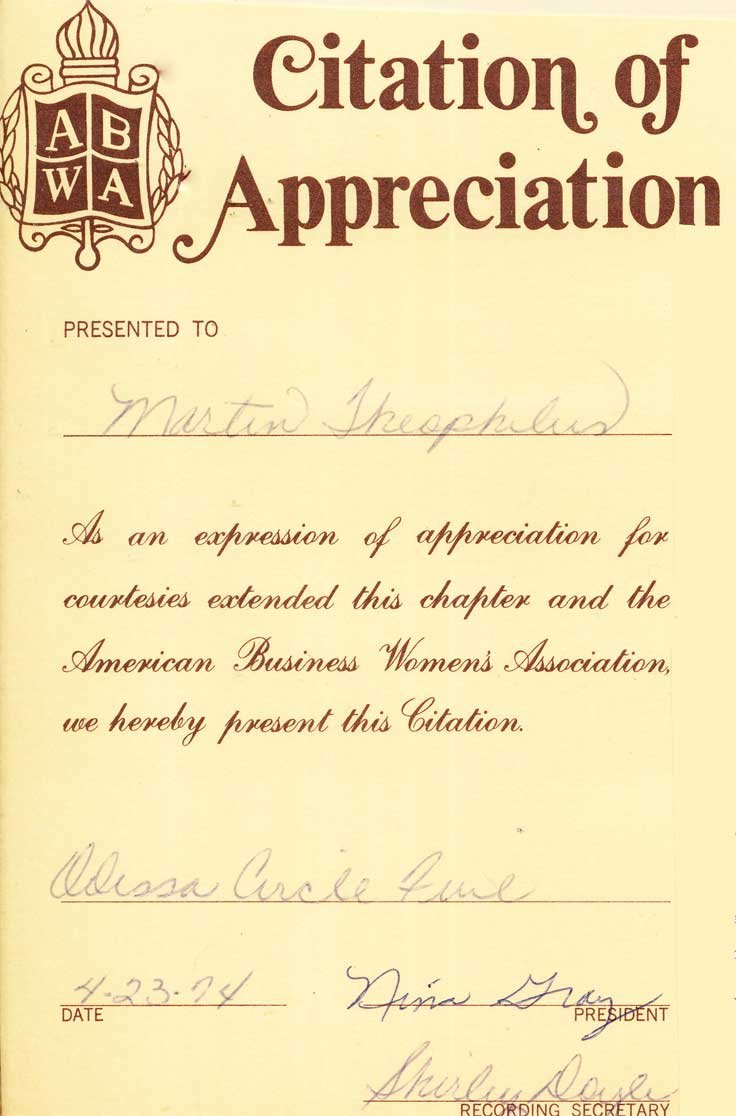 A B
W A
Citation of
Appreciation
PRESENTED TO
Martin Theophilus
As an expression of appreciation for
courtesies extended this chapter and the
American Business Women's Association,
we hereby present this Citation.
Odessa Circle Five
4-23-74
Nina Gray
DATE
PRESIDENT
Shirley Doyle
RECORDING SECRETARY